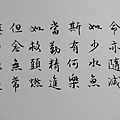 命亦隨減
如少水魚
斯有何樂
當勤精進
如救頭燃
但念無常